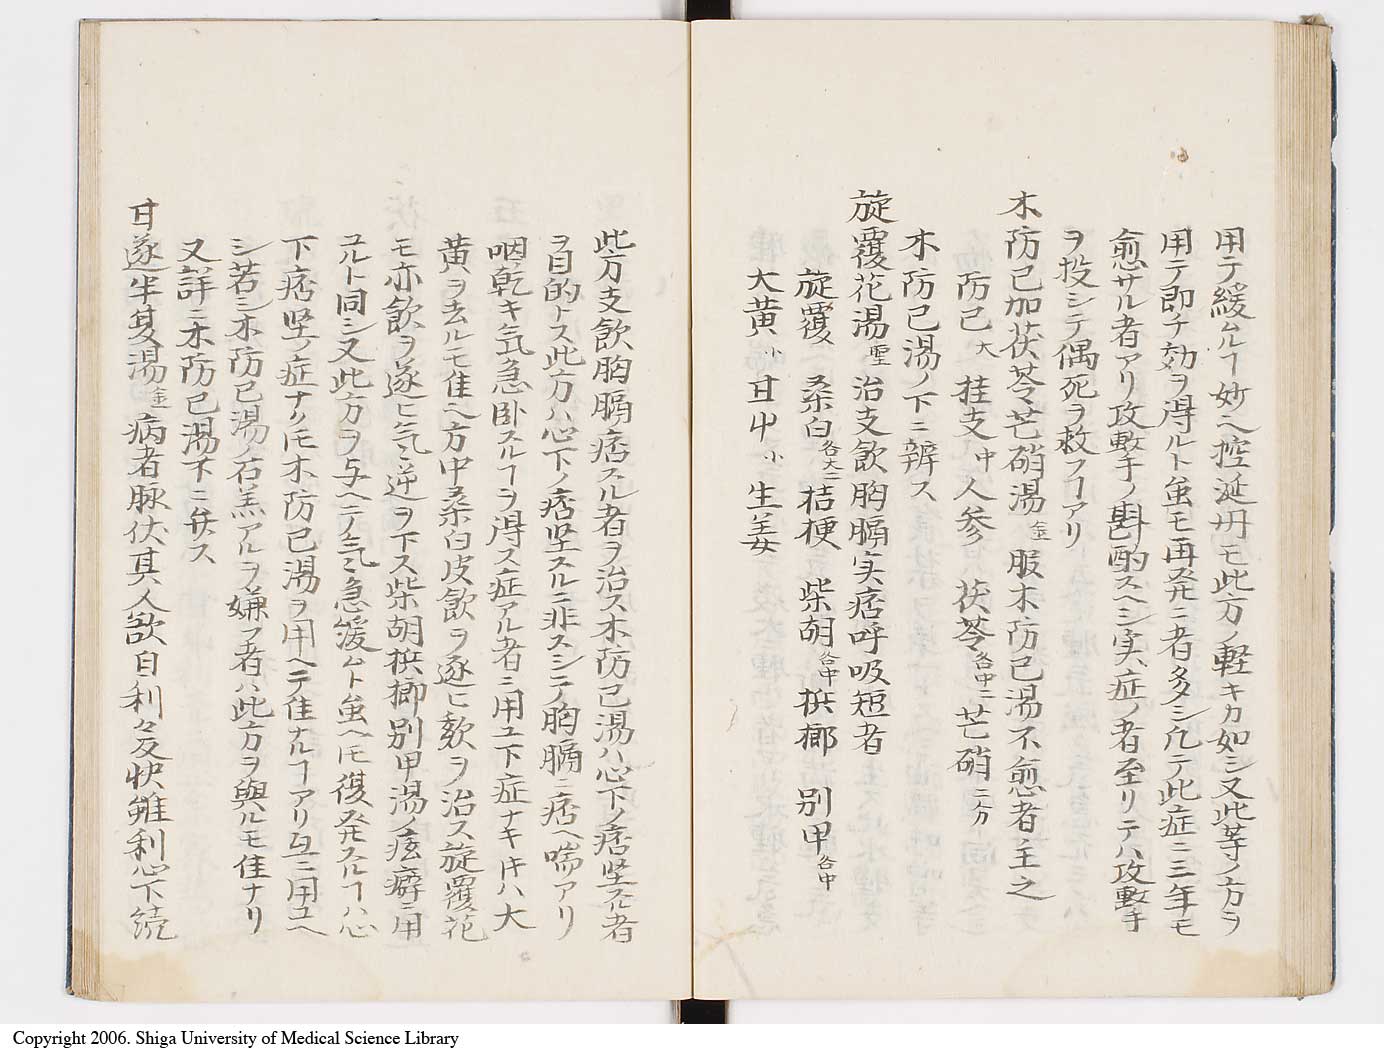 用テ緩ムルヿ妙ヘ控涎丹モ此方ノ軽キカ如シ又此等ノ方ヲ
用テ即チ効ヲ得ルト虽モ再発ニ者多シ凡テ此症ニ三年モ
愈サル者アリ攻撃ノ斟酌スヘシ実症ノ者至リテハ攻撃
ヲ投シテ偶死ヲ救フヿアリ
木防己加茯苓芒硝湯 金 服木防己湯不愈者主之
防己 大 桂支 中 人参 茯苓 各中二 芒硝 二分
木防己湯ノ下ニ辨ス
旋覆花湯 聖 治支飲胸膈实痞呼吸短者
旋覆 桑白 各大二 桔梗 柴胡 各中 梹榔 別甲 各中
大黄 小 甘屮 小 生姜
此方支飲胸膈痞スル者ヲ治ス木防己湯ハ心下ノ痞坚スル者
ヲ目的トス此方ハ心下ノ痞坚スルニ非スシテ胸膈ニ痞ヘ喘アリ
咽乾キ気急卧スルヿヲ得ス症アル者ニ用ユ下症ナキ𪜈ハ大
黄ヲ去ルモ佳ヘ方中桑白皮飲ヲ逐ヒ欬ヲ治ス旋覆花
モ亦飲ヲ逐ヒ气逆ヲ下ス柴胡梹榔別甲湯ノ痃癖ニ用
ユルト同シ又此方ヲ与ヘテ气急緩ムト虽ヘ𪜈復発スルヿハ心
下痞坚ノ症ナク𪜈木防己湯ヲ用ヘテ佳ナルヿアリ互ニ用ユヘ
シ若シ木防己湯ノ石羔アルヲ嫌フ者ハ此方ヲ與ルモ佳ナリ
又詳ニ木防已湯下ニ弁ス
甘遂半夏湯 金 病者脉伏其人欲自利々反快雖利心下続
Copyright 2006. Shiga University of Medical Science Library